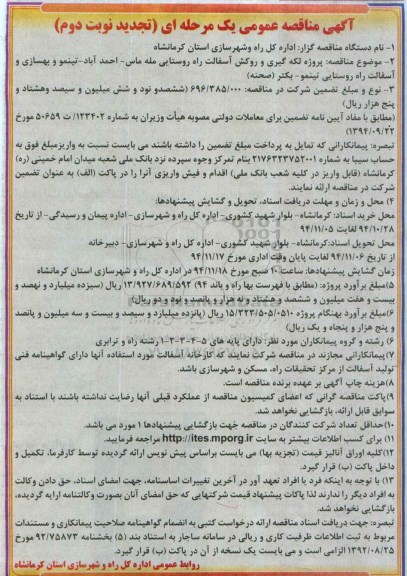 آگهی مناقصه عمومی یک مرحله ای (تجدید نوبت دوم)
۱- نام دستگاه مناقصه گزار: اداره کل راه وشهرسازی استان کرمانشاه
۲- موضوع مناقصه: پروژه لکه گیری و روکش آسفالت راه روستایی مله ماس- احمد آباد-تینمو و بهسازی و
آسفالت راه روستایی تینمو- بکتر (صحنه)
۳- نوع و مبلغ تضمین شرکت در مناقصه: ۶۹۶/۳۸۵/۰۰۰ (ششصدو نود و شش میلیون و سیصد وهشتاد و
پنج هزار ریال)
(مطابق با مفاد آیین نامه تضمین برای معاملات دولتی مصوبه هیأت وزیران به شماره ۱۲۳۴۰۲/ ت ۵۰۶۵۹ مورخ
۱۳۹۴/۰۹/۲۲)
تبصره: پیمانکارانی که تمایل به پرداخت مبلغ تضمین را داشته باشند می بایست نسبت به واریزمبلغ فوق به
حساب سیبا به شماره ۲۱۷۶۴۳۲۷۵۲۰۰۱ بنام تمرکز وجوه سپرده نزد بانک ملی شعبه میدان امام خمینی (ره)
کرمانشاه (قابل واریز در کلیه شعب بانک ملی) اقدام و فیش واریزی آنرا را در پاکت (الف) به عنوان تضمین
شرکت در مناقصه ارائه نمایند.
۴) محل و زمان و مهلت دریافت اسناد، تحویل و گشایش پیشنهادها:
محل خرید اسناد: کرمانشاه- بلوار شهید کشوری- اداره کل راه و شهرسازی- اداره پیمان و رسیدگی- از تاریخ
۹۴/۱۰/۲۸ لغایت ۹۴/۱۱/۰۵
محل تحویل اسناد:کرمانشاه- بلوار شهید کشوری- اداره کل راه و شهرسازی- دبیرخانه
از تاریخ ۹۴/۱۱/۰۶ لغایت پایان وقت اداری مورخ ۹۴/۱۱/۱۷
زمان گشایش پیشنهادها: ساعت ۱۰ صبح مورخ ۹۴/۱۱/۱۸ در اداره کل راه و شهرسازی استان کرمانشاه
۵)مبلغ برآورد پروژه: (مطابق با فهرست بها راه و باند ۹۴) ۱۳/۹۲۷/۶۸۹/۵۹۲ ریال (سیزده میلیارد و نهصد و
بیست و هفت میلیون و ششصد و هشتاد و نه هزار و پانصد و نود و دو ریال)
۶)مبلغ برآورد بهنگام پروژه ۱۵/۳۲۳/۵۰۵/۰۵۱۰ ریال (پانزده میلیارد و سیصد و بیست و سه میلیون و پانصد
و پنج هزار و پنجاه و یک ریال)
۶) رشته و گروه پیمانکاران مورد نظر: دارای پایه های ۵-۴-۳-۲-۱ رشته راه و ترابری
۷)پیمانکارانی مجازند در مناقصه شرکت نمایند که کارخانه آسفالت مورد استفاده آنها دارای گواهینامه فنی
تولید آسفالت از مرکز تحقیقات راه، مسکن و شهرسازی باشد.
۸)هزینه چاپ آگهی بر عهده برنده مناقصه است.
۹)پاکت مناقصه گرانی که اعضای کمیسیون مناقصه از عملکرد قبلی آنها رضایت نداشته باشند با استناد به
سوابق قابل ارائه، بازگشایی نخواهد شد.
۱۰)حداقل تعداد شرکت کنندگان در مناقصه جهت بازگشایی پیشنهادها ۱ مورد می باشد.
۱۱) برای کسب اطلاعات بیشتر به سایت http://ites.mporg.ir مراجعه فرمایید.
۱۲)کلیه اوراق آنالیز قیمت (تجزیه بها) می بایست براساس پیش نویس ارائه گردیده توسط کارفرما، تکمیل و
داخل پاکت (ب) قرار گیرد.
۱۳) با توجه به اینکه فرد یا افراد تعهد آور در آخرین تغییرات اساسنامه، جهت امضای اسناد، حق دادن وکالت
به افراد دیگر را ندارند لذا پاکات پیشنهاد قیمت شرکتهایی که حق امضای آنان بصورت وکالتنامه ارایه گردیده،
بازگشایی نخواهد شد.
تبصره: جهت دریافت اسناد مناقصه ارائه درخواست کتبی به انضمام گواهینامه صلاحیت پیمانکاری و مستندات
مربوط به ثبت اطلاعات ظرفیت کاری و ریالی در سامانه ساجار به استناد بند (۵) بخشنامه ۹۲/۷۵۸۷۳ مورخ
۱۳۹۲/۰۸/۲۵ الزامی است و می بایست یک نسخه از آن در پاکت (ب) قرار گیرد.
روابط عمومی اداره کل راه و شهرسازی استان کرمانشاه